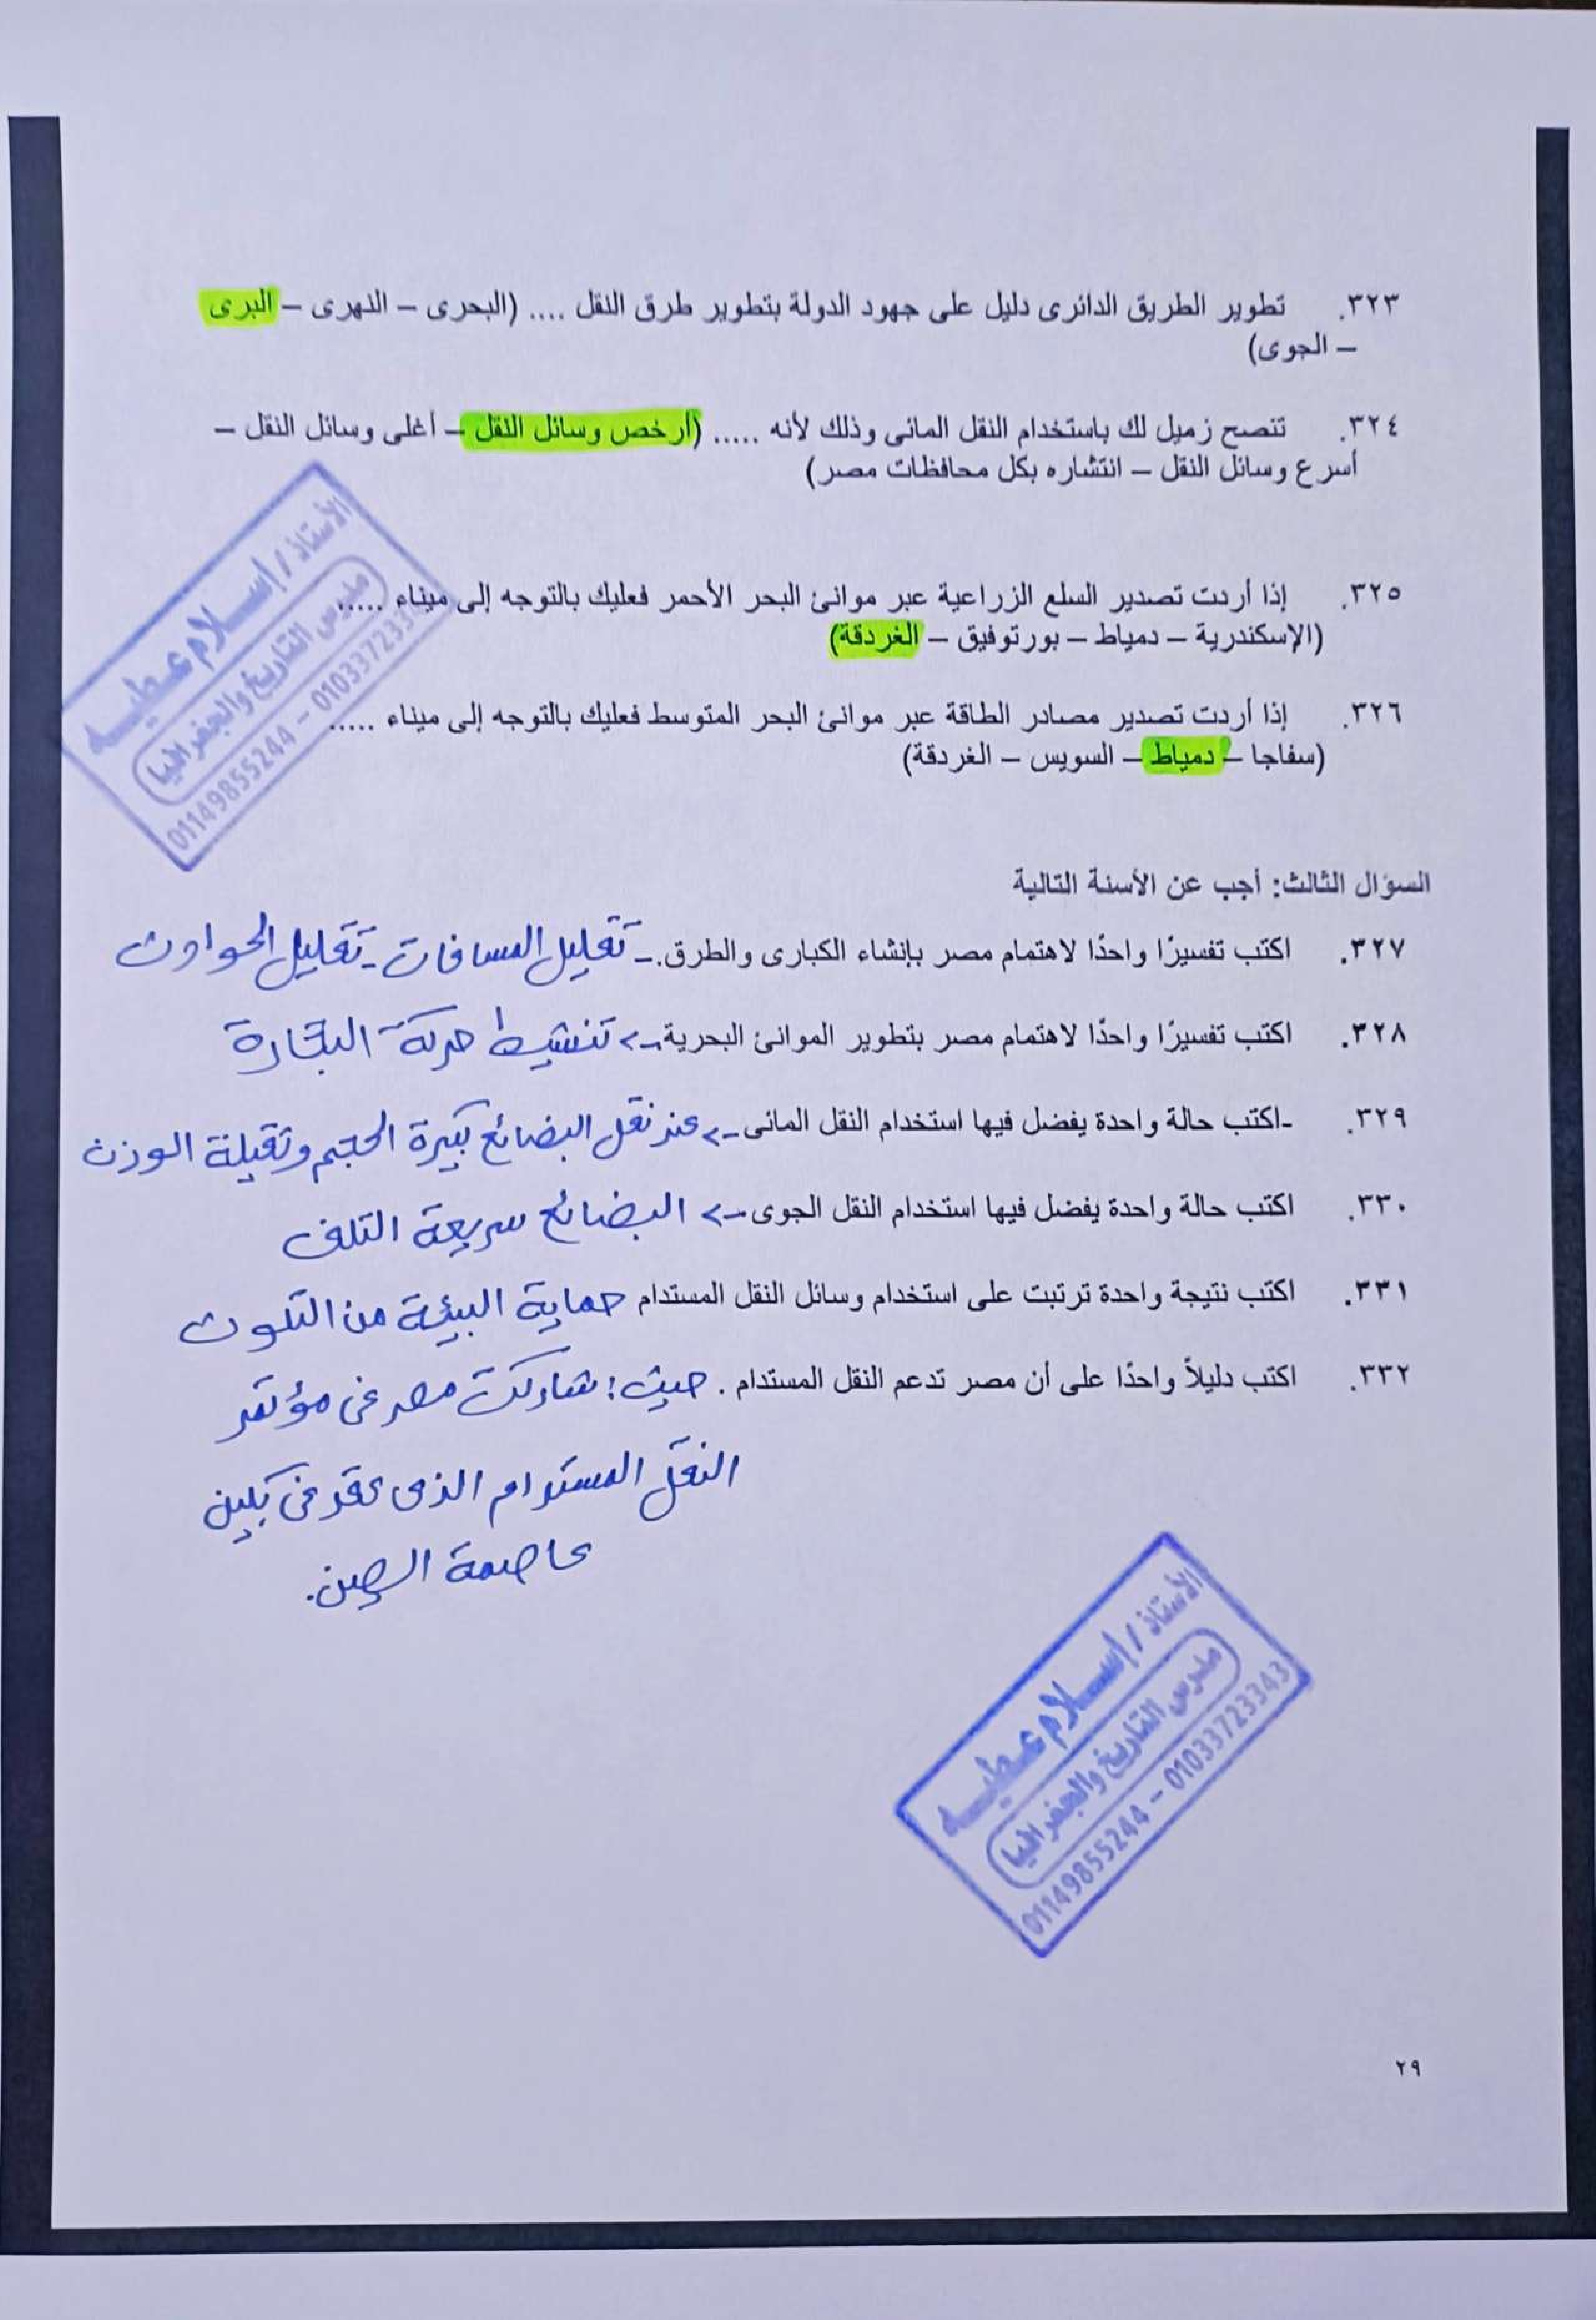 ٣٢٣. تطوير الطريق الدائرى دليل على جهود الدولة بتطوير طرق النقل .... (البحرى – النهرى – البرى
– الجوى)
٣٢٤. تنصح زميل لك باستخدام النقل المائى وذلك لأنه ..... (أرخص وسائل النقل – أغلى وسائل النقل –
أسرع وسائل النقل – انتشاره بكل محافظات مصر)
٣٢٥. إذا أردت تصدير السلع الزراعية عبر موانئ البحر الأحمر فعليك بالتوجه إلى ميناء .....
(الإسكندرية – دمياط – بورتوفيق – الغردقة)
٣٢٦. إذا أردت تصدير مصادر الطاقة عبر موانئ البحر المتوسط فعليك بالتوجه إلى ميناء .....
(سفاجا – دمياط – السويس – الغردقة)
الأستاذ / إسلام عطيه
مدرس التاريخ والجغرافيا
01149855244 – 0103372334
السؤال الثالث: أجب عن الأسنة التالية
٣٢٧. اكتب تفسيرًا واحدًا لاهتمام مصر بإنشاء الكبارى والطرق. - تقليل المسافات - تقليل الحوادث
٣٢٨. اكتب تفسيرًا واحدًا لاهتمام مصر بتطوير الموانئ البحرية -> تنشيط حركة التجارة
٣٢٩. -اكتب حالة واحدة يفضل فيها استخدام النقل المائى -> عند نقل البضائع كبيرة الحجم وثقيلة الوزن
٣٣٠. اكتب حالة واحدة يفضل فيها استخدام النقل الجوى -> البضائع سريعة التلف
٣٣١. اكتب نتيجة واحدة ترتبت على استخدام وسائل النقل المستدام حماية البيئة من التلوث
٣٣٢. اكتب دليلاً واحدًا على أن مصر تدعم النقل المستدام . حيث: شاركت مصر فى مؤتمر
النقل المستدام الذى عقد فى بكين
عاصمة الصين.
الأستاذ / إسلام عطيه
مدرس التاريخ والجغرافيا
01149855244 – 01033723343
٢٩